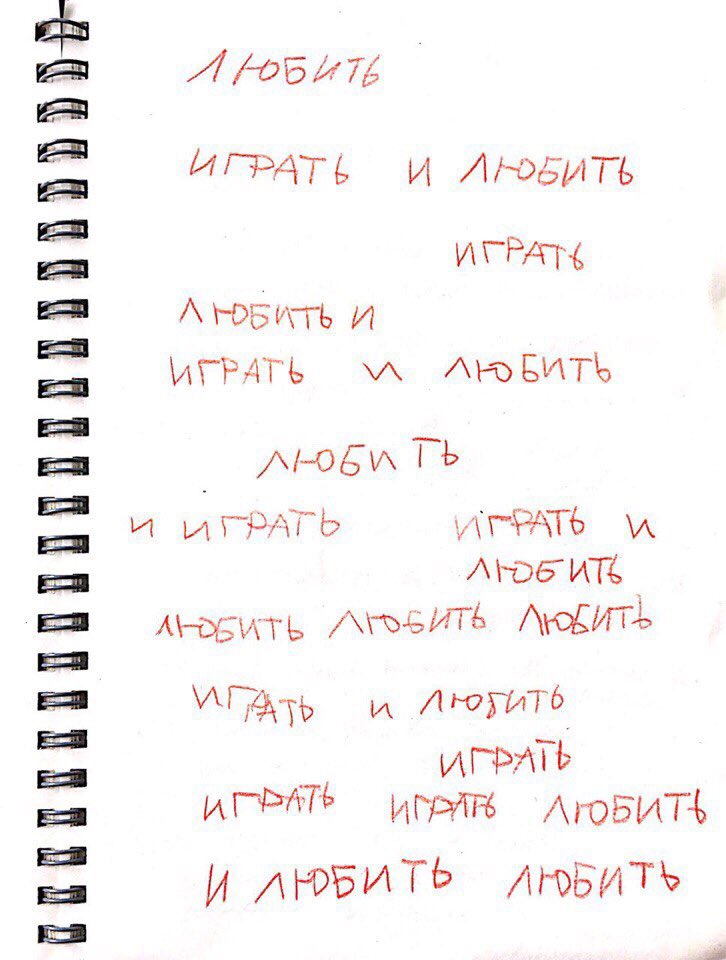 ЛЮБИТЬ
ИГРАТЬ И ЛЮБИТЬ
ИГРАТЬ
ЛЮБИТЬ И
ИГРАТЬ И ЛЮБИТЬ
ЛЮБИТЬ
И ИГРАТЬ ИГРАТЬ И
ЛЮБИТЬ
ЛЮБИТЬ ЛЮБИТЬ ЛЮБИТЬ
ИГРАТЬ И ЛЮБИТЬ
ИГРАТЬ
ИГРАТЬ ИГРАТЬ ЛЮБИТЬ
И ЛЮБИТЬ ЛЮБИТЬ